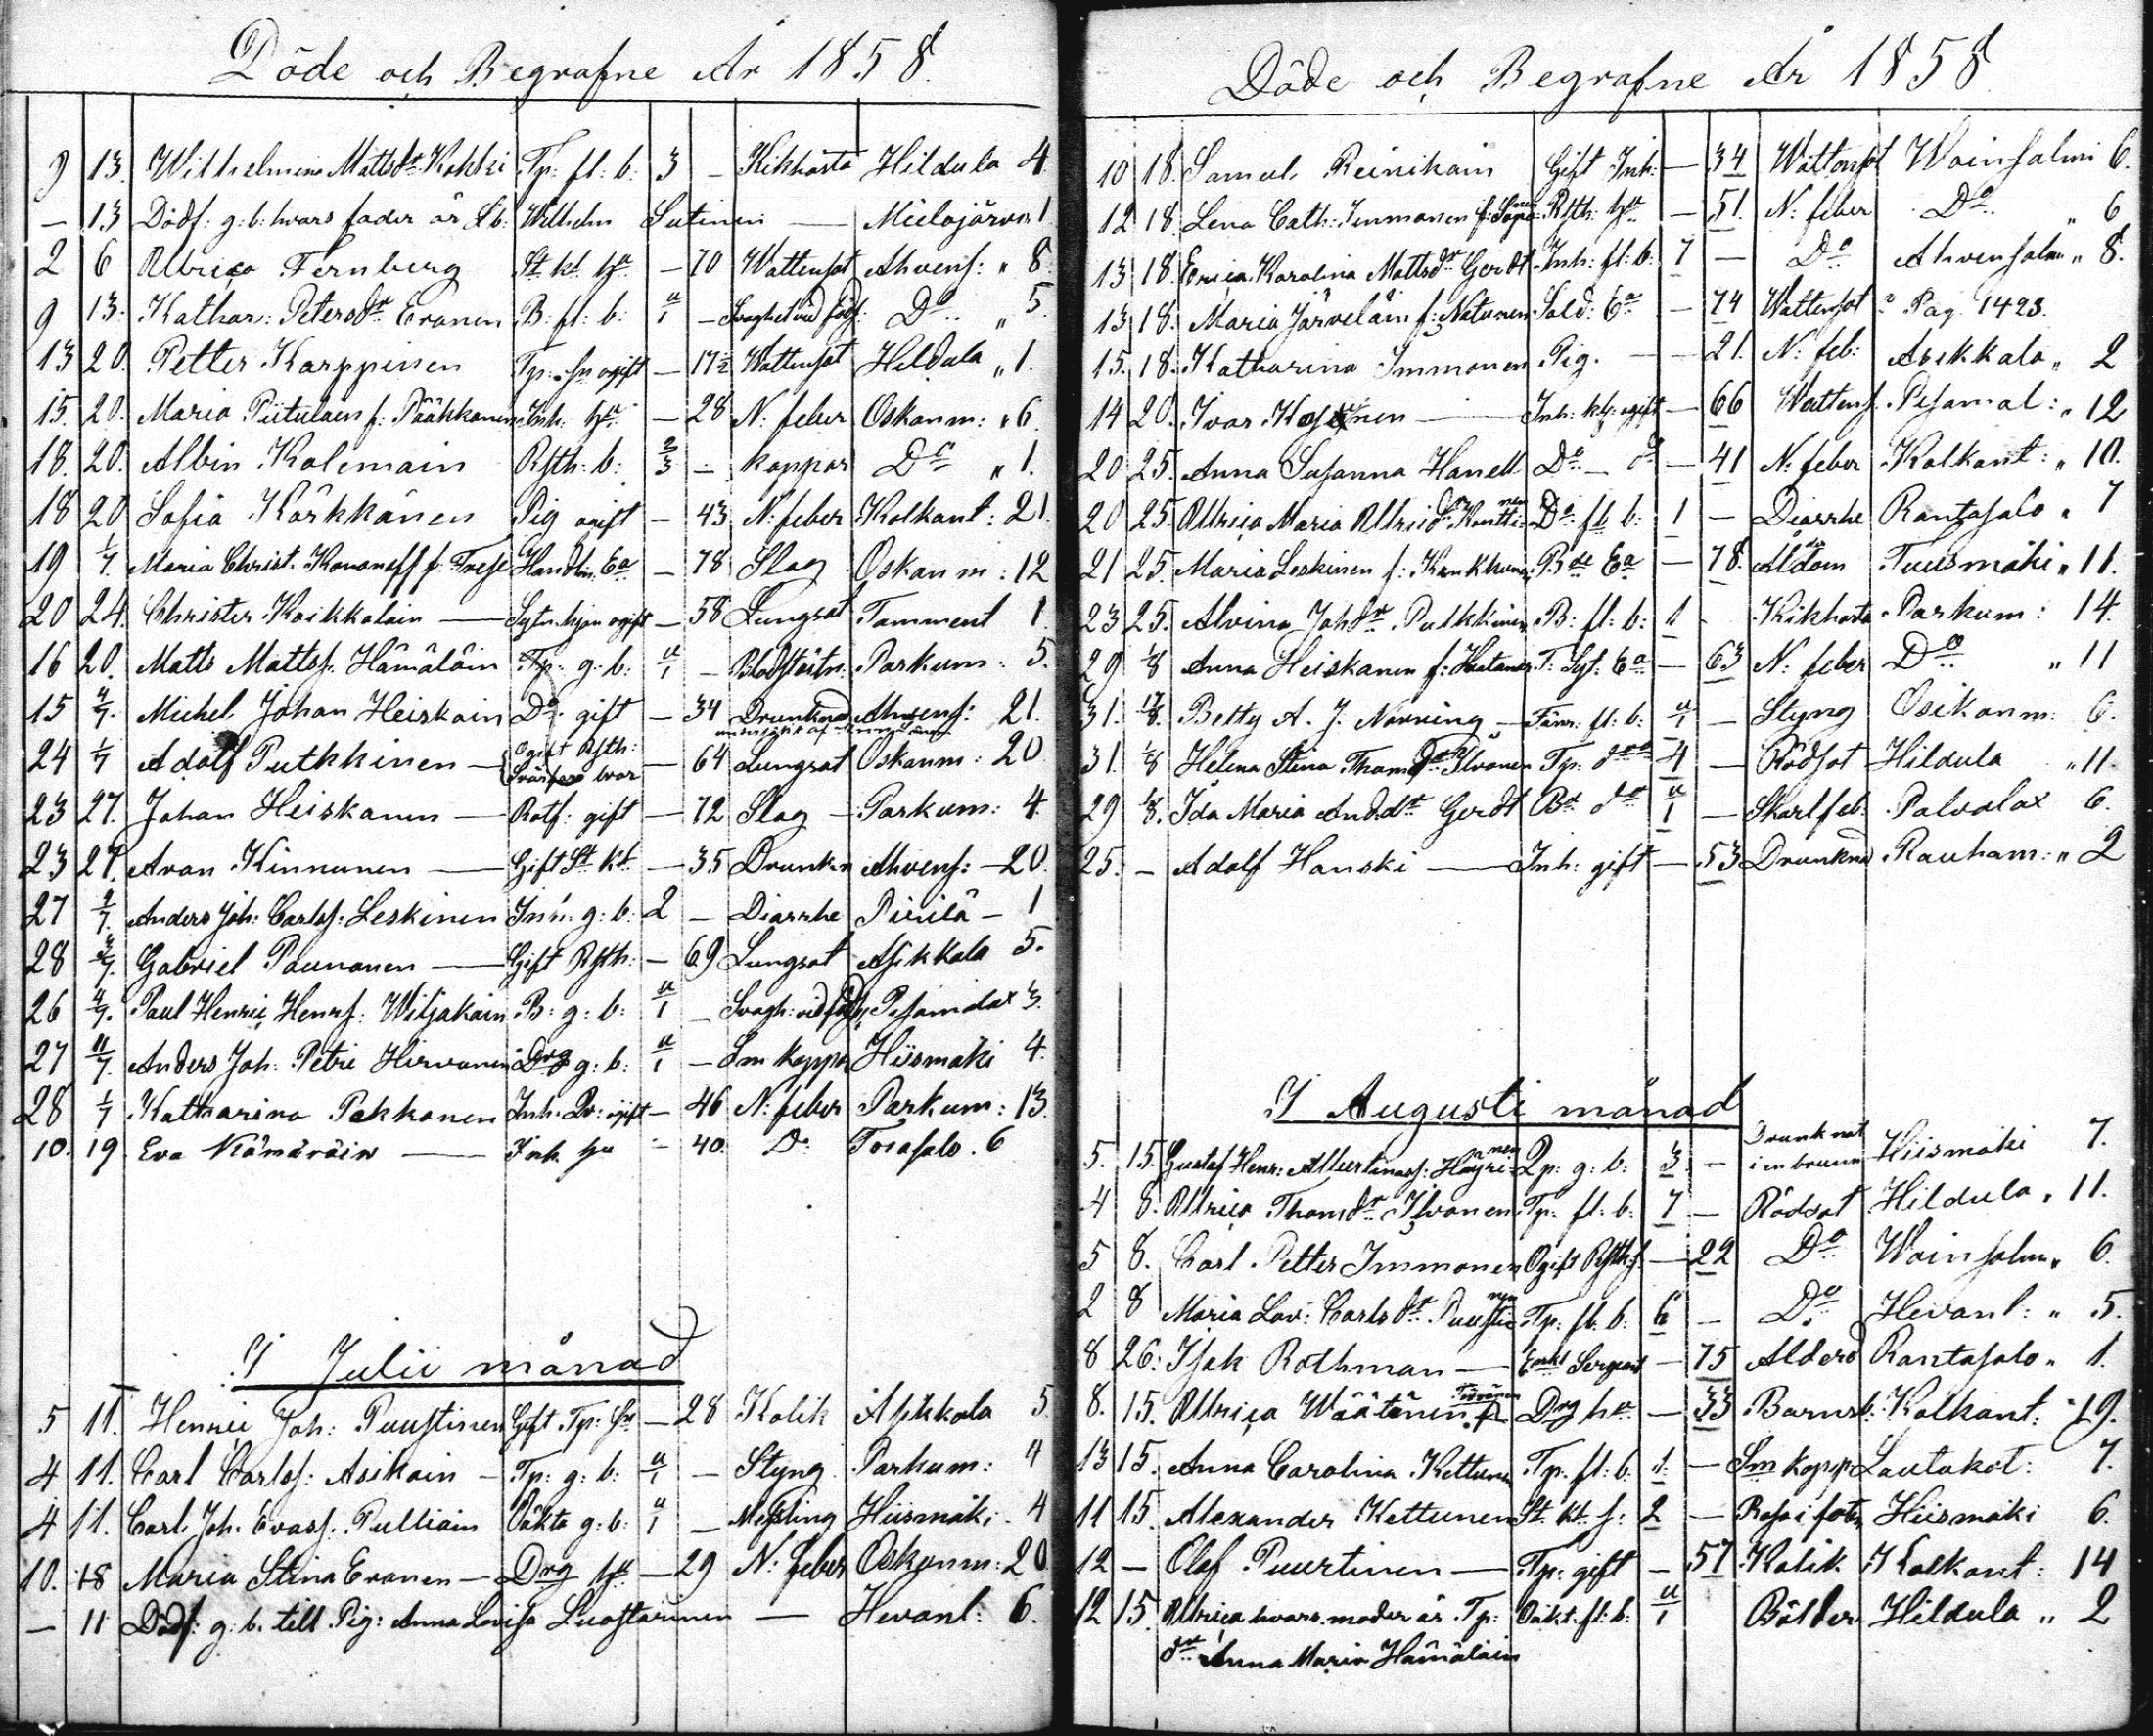 Döde och Begrafne År 1858.
9 13. Wilhelmina Mattsdr Kokki Tp: fl: b: 3 – Kikhosta Hildula 4.
– 13 Dödf: g: b: hvars fader är Lb: Wilhelm Sutinen — Mielojärvi 1.
2 6 Ulrica Fernberg St. kl. hu – 70 Wattensot Ahvens: „ 8.
9 13. Kathar: Petersdr Evanen B: fl: b: u/1 – Svaghet vid föds: Do „ 5.
13 20. Petter Karppinen Tp: sn ogift – 17½ Wattensot Hildula „ 1.
15. 20. Maria Piitulain f: Pääkkönen Inh: hu – 28 N: feber Oskanm: „ 6.
18. 20. Albin Kolemain Rsth: b: 2/3 – koppor Do „ 1.
18 20 Sofia Kärkkänen Pig ogift – 43 N: feber Kolkant: 21.
19 1/7. Maria Christ. Kononoff f: Frese Handlm. Ea – 78 Slag Oskanm: 12
20 24. Christer Koikkalain — Sytn.hjon ogift – 58 Lungsot Tamment 1.
16 20. Matts Mattss: Hämäläin Tp: g: b: u/1 – Blodstörtn: Parkum: 5.
15 4/7. Michel Johan Heiskain Do gift – 34 Drunknad Ahvens: 21.
24 1/7 Adolf Putkkinen — Ogift Rsth: – 64 Lungsot Oskanm: 20
Svärfars bror
23 27. Johan Heiskanen — Rotf: gift – 72 Slag – Parkum: 4.
23 27. Aron Kinnunen — Gift St kl – 35 Drunkn Ahvens: – 20.
27 2/7. Anders Joh: Carlss: Leskinen Inh: g: b: 2 – Diarrhe Pirilä – 1
28 4/7. Gabriel Paunonen — Gift Rsth: – 69 Lungsot Asikkala 5.
26 4/7. Paul Henric Henrs: Wiljakain B: g: b: u/1 – Svagh: vid föds: Pesamalax 3.
27 11/7. Anders Joh: Petri Hirvonen Drg g: b: u/1 – Sm koppor Hiismäki 4.
28 1/7 Katharina Pekkonen Inh: Qv: ogift – 46 N: feber Parkum: 13.
10. 19 Eva Nämäräin — Inh. hu – 40. Do Torasalo. 6
I Julii månad
5 11. Henric Joh: Puustinen Gift Tp: sn – 28 Kolik Asikkala 5
4 11. Carl Carlss: Asikain – Tp: g: b: u/1 – Styng Parkum: 4
4 11. Carl Joh. Evass: Pulliain Oäkta g: b: u/1 – Messling Hiismäki 4
10. 18 Maria Stina Evanen – Drg hu – 29 N: feber Oskanm: 20
– 11 Dödf: g: b. till Pig: Anna Lovisa Luostarinen — Hevonl: 6.
Döde och Begrafne År 1858
10 18. Samuel Reinikain Gift Inh: – 34 Wattensot Woinsalmi 6.
12 18. Lena Cath: Immonen f: Soponen Rsth: hu – 51. N: feber Do „ 6
13 18. Erica Karolina Mattsdr Gerdt Inh: fl: b: 7 – Do Ahvensalm „ 8.
13 18. Maria Järveläin f: Natunen Sold: Ea – 74 Wattensot ? Pag 1423.
15. 18. Katharina Immonen Pig. – 21. N: feb: Asikkala „ 2
14 20. Ivar Kosonen — Inh: kl: ogift – 66 Wattens: Pesamal: „ 12
20 25. Anna Susanna Hanell Do – do – 41 N: feber Kolkant: „ 10.
20 25. Ulrica Maria Ulricdr Konttinen Do fl: b: 1 – Diarrhe Rantasalo „ 7
21 25. Maria Leskinen f: Kankkunen Bde Ea – 78. Åldom Tuusmäki „ 11.
23 25. Alvina Johdr Pulkkinen B: fl: b: 1 – Kikhosta Parkum: 14.
29 1/8 Anna Heiskanen f: Hatanen T: Syt: Ea – 63 N: feber Do „ 11
31. 17/8. Betty A. J. Norring – Färs: fl: b: u/1 – Styng Osikonm: 6.
31. 1/8 Helena Stina Thomdr Ilvonen Tp: do 4 – Rödsot Hildula „ 11.
29 1/8. Ida Maria And:dr Gerdt Br do u/1 – Skarlfeb: Palvalax 6.
25. – Adolf Hanski — Inh: gift – 53 Drunknad Rauham: „ 2
I Augusti månad
5. 15. Gustaf Henr: Albertinass: Häyrinen Lp: g: b: 3 – Drunknat i en brunn Hiismäki 7.
4 8. Ulrica Thomdr Ilvonen Tp: fl: b: 7 – Rödsot Hildula „ 11.
5 8. Carl Petter Immonen Ogift Rsth:s: – 22 Do Woinsalm „ 6.
2 8 Maria Lov: Carlsdr Puustinen Tp: fl: b: 6 – Do Hevonl: „ 5.
8 26. Isak Rothman — Enkl Sergeant – 75 Alderd Rantasalo „ 1.
8. 15. Ulrica Wäätänen f. Drg hu – 33 Barnsb: Kolkont: 19.
13 15. Anna Carolina Kettunen Tp. fl: b. 1. – Sm kopp: Lautakot: 7.
11 15. Alexander Kettunen St. kl. s: 2 – Ros i foten Hiismäki 6.
12 – Olof Puurtinen — Tp: gift – 57 Kolik Kolkont: 14
12 15. Ulrica hvars moder är Tp: Oäkt. fl: b: u/1 Bölder Hildula „ 2
dr Anna Maria Hämäläin